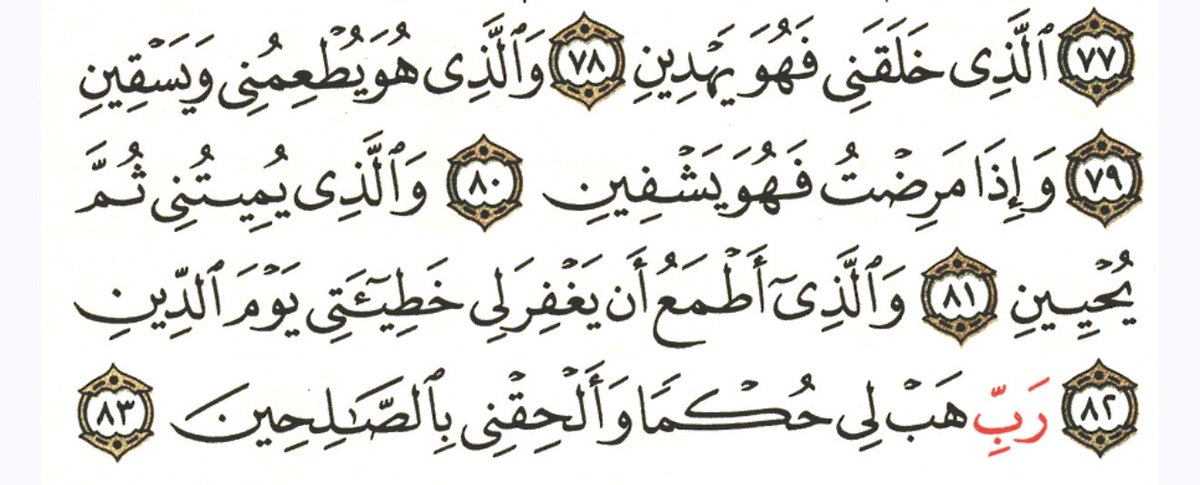 ٧٧ ٱلَّذِى خَلَقَنِى فَهُوَ يَهْدِينِ ٧٨ وَٱلَّذِى هُوَ يُطْعِمُنِى وَيَسْقِينِ
٧٩ وَإِذَا مَرِضْتُ فَهُوَ يَشْفِينِ ٨٠ وَٱلَّذِى يُمِيتُنِى ثُمَّ
يُحْيِينِ ٨١ وَٱلَّذِىٓ أَطْمَعُ أَن يَغْفِرَ لِى خَطِيٓـَٔتِى يَوْمَ ٱلدِّينِ
٨٢ رَبِّ هَبْ لِى حُكْمًا وَأَلْحِقْنِى بِٱلصَّـٰلِحِينَ ٨٣